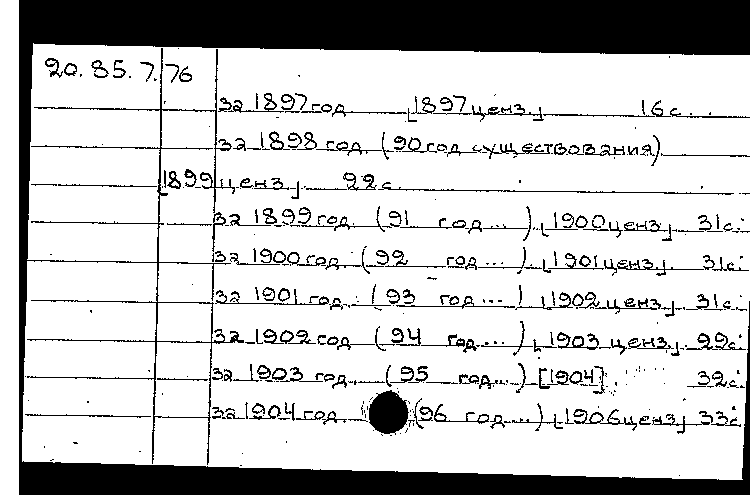 20.85.7.76
за 1897 год. [1897 ценз.] 16 с.
за 1898 год. (90 год существования)
[1899 ценз]. 22 с.
за 1899 год. (91 год...). [1900 ценз]. 31 с.
за 1900 год. (92 год...). [1901 ценз.]. 31 с.
за 1901 год. (93 год...) [1902 ценз.]. 31 с.
за 1902 год (94 год...) [1903 ценз.]. 29 с.
за 1903 год. (95 год...) [1904]. 32 с.
за 1904 год. (96 год...) [1906 ценз] 33 с.